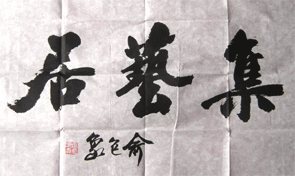 集藝居
俞包象